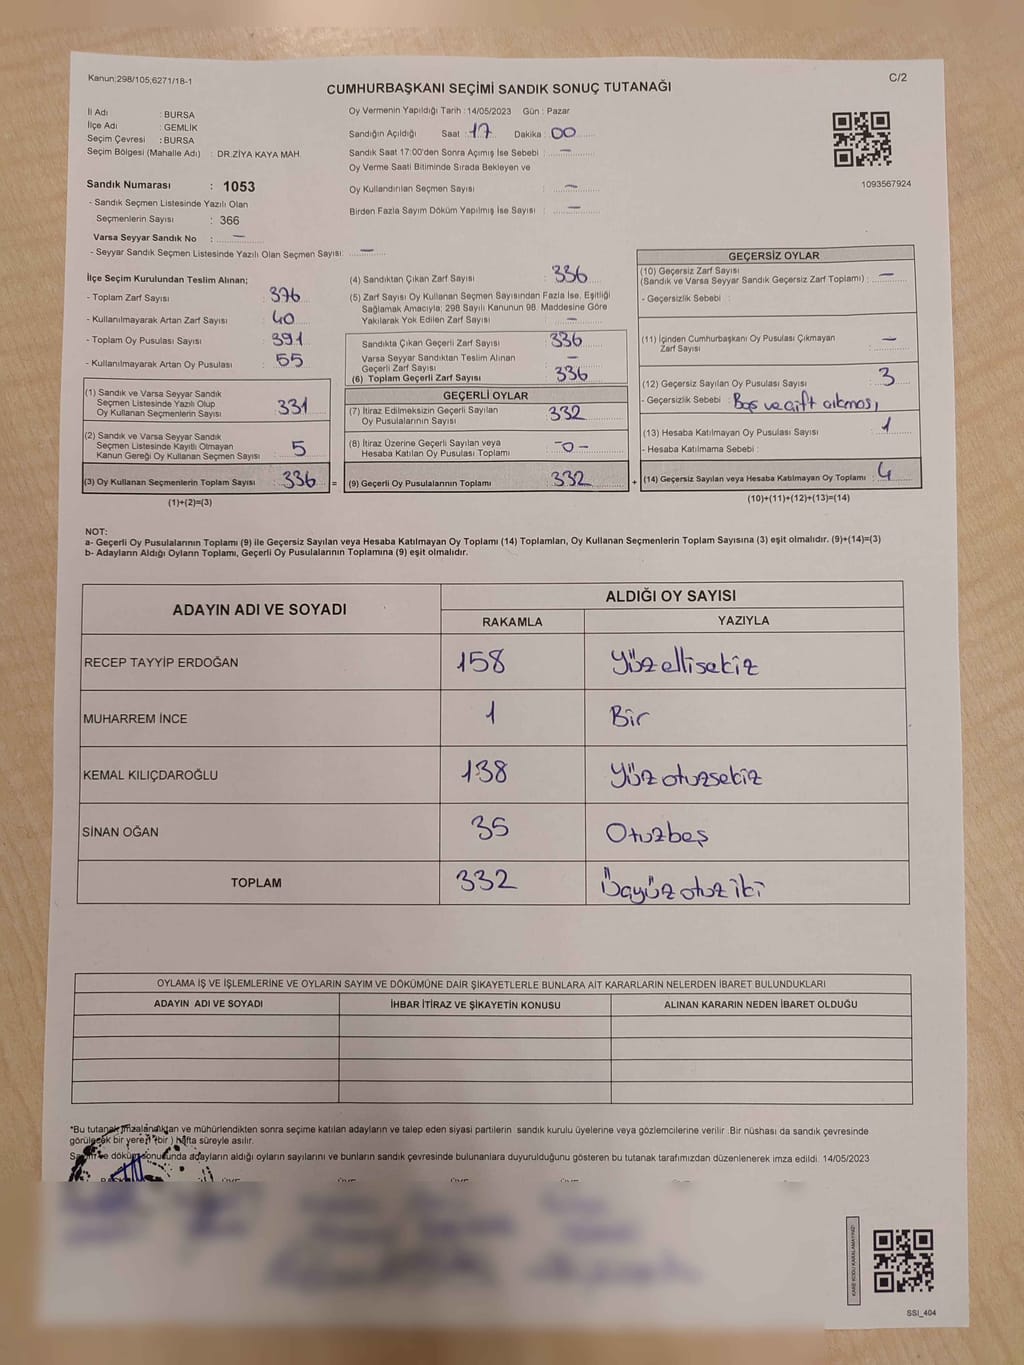 Kanun;298/105;6271/18-1
C/2
CUMHURBAŞKANI SEÇİMİ SANDIK SONUÇ TUTANAĞI
İl Adı : BURSA
İlçe Adı : GEMLİK
Seçim Çevresi : BURSA
Seçim Bölgesi (Mahalle Adı) : DR.ZİYA KAYA MAH.
Sandık Numarası : 1053
- Sandık Seçmen Listesinde Yazılı Olan
Seçmenlerin Sayısı : 366
Varsa Seyyar Sandık No : —
- Seyyar Sandık Seçmen Listesinde Yazılı Olan Seçmen Sayısı: —
Oy Vermenin Yapıldığı Tarih : 14/05/2023 Gün : Pazar
Sandığın Açıldığı Saat : 17 Dakika : 00
Sandık Saat 17:00'den Sonra Açımış İse Sebebi : —
Oy Verme Saati Bitiminde Sırada Bekleyen ve
Oy Kullandırılan Seçmen Sayısı : —
Birden Fazla Sayım Döküm Yapılmış İse Sayısı : —
1093567924
İlçe Seçim Kurulundan Teslim Alınan;
- Toplam Zarf Sayısı : 376
- Kullanılmayarak Artan Zarf Sayısı : 40
- Toplam Oy Pusulası Sayısı : 391
- Kullanılmayarak Artan Oy Pusulası : 55
(1) Sandık ve Varsa Seyyar Sandık
Seçmen Listesinde Yazılı Olup
Oy Kullanan Seçmenlerin Sayısı : 331
(2) Sandık ve Varsa Seyyar Sandık
Seçmen Listesinde Kayıtlı Olmayan
Kanun Gereği Oy Kullanan Seçmen Sayısı : 5
(3) Oy Kullanan Seçmenlerin Toplam Sayısı : 336 =
(1)+(2)=(3)
(4) Sandıktan Çıkan Zarf Sayısı : 336
(5) Zarf Sayısı Oy Kullanan Seçmen Sayısından Fazla İse, Eşitliği
Sağlamak Amacıyla; 298 Sayılı Kanunun 98. Maddesine Göre
Yakılarak Yok Edilen Zarf Sayısı : —
Sandıkta Çıkan Geçerli Zarf Sayısı : 336
Varsa Seyyar Sandıktan Teslim Alınan
Geçerli Zarf Sayısı : —
(6) Toplam Geçerli Zarf Sayısı : 336
GEÇERLİ OYLAR
(7) İtiraz Edilmeksizin Geçerli Sayılan
Oy Pusulalarının Sayısı : 332
(8) İtiraz Üzerine Geçerli Sayılan veya
Hesaba Katılan Oy Pusulası Toplamı : -0-
(9) Geçerli Oy Pusulalarının Toplamı : 332 +
GEÇERSİZ OYLAR
(10) Geçersiz Zarf Sayısı
(Sandık ve Varsa Seyyar Sandık Geçersiz Zarf Toplamı) : —
- Geçersizlik Sebebi :
(11) İçinden Cumhurbaşkanı Oy Pusulası Çıkmayan
Zarf Sayısı : —
(12) Geçersiz Sayılan Oy Pusulası Sayısı : 3
- Geçersizlik Sebebi : Boş ve çift çıkması
(13) Hesaba Katılmayan Oy Pusulası Sayısı : 1
- Hesaba Katılmama Sebebi :
(14) Geçersiz Sayılan veya Hesaba Katılmayan Oy Toplamı : 4
(10)+(11)+(12)+(13)=(14)
NOT:
a- Geçerli Oy Pusulalarının Toplamı (9) ile Geçersiz Sayılan veya Hesaba Katılmayan Oy Toplamı (14) Toplamları, Oy Kullanan Seçmenlerin Toplam Sayısına (3) eşit olmalıdır. (9)+(14)=(3)
b- Adayların Aldığı Oyların Toplamı, Geçerli Oy Pusulalarının Toplamına (9) eşit olmalıdır.
ADAYIN ADI VE SOYADI
ALDIĞI OY SAYISI
RAKAMLA YAZIYLA
RECEP TAYYİP ERDOĞAN 158 Yüzellisekiz
MUHARREM İNCE 1 Bir
KEMAL KILIÇDAROĞLU 138 Yüzotuzsekiz
SİNAN OĞAN 35 Otuzbeş
TOPLAM 332 Üçyüzotuziki
OYLAMA İŞ VE İŞLEMLERİNE VE OYLARIN SAYIM VE DÖKÜMÜNE DAİR ŞİKAYETLERLE BUNLARA AİT KARARLARIN NELERDEN İBARET BULUNDUKLARI
ADAYIN ADI VE SOYADI İHBAR İTİRAZ VE ŞİKAYETİN KONUSU ALINAN KARARIN NEDEN İBARET OLDUĞU
*Bu tutanak imzalandıktan ve mühürlendikten sonra seçime katılan adayların ve talep eden siyasi partilerin sandık kurulu üyelerine veya gözlemcilerine verilir .Bir nüshası da sandık çevresinde
görülecek bir yere 1 (bir ) hafta süreyle asılır.
Sayım ve döküm sonucunda adayların aldığı oyların sayılarını ve bunların sandık çevresinde bulunanlara duyurulduğunu gösteren bu tutanak tarafımızdan düzenlenerek imza edildi. 14/05/2023
KARE KODU KARALAMAYINIZ!
SSI_404